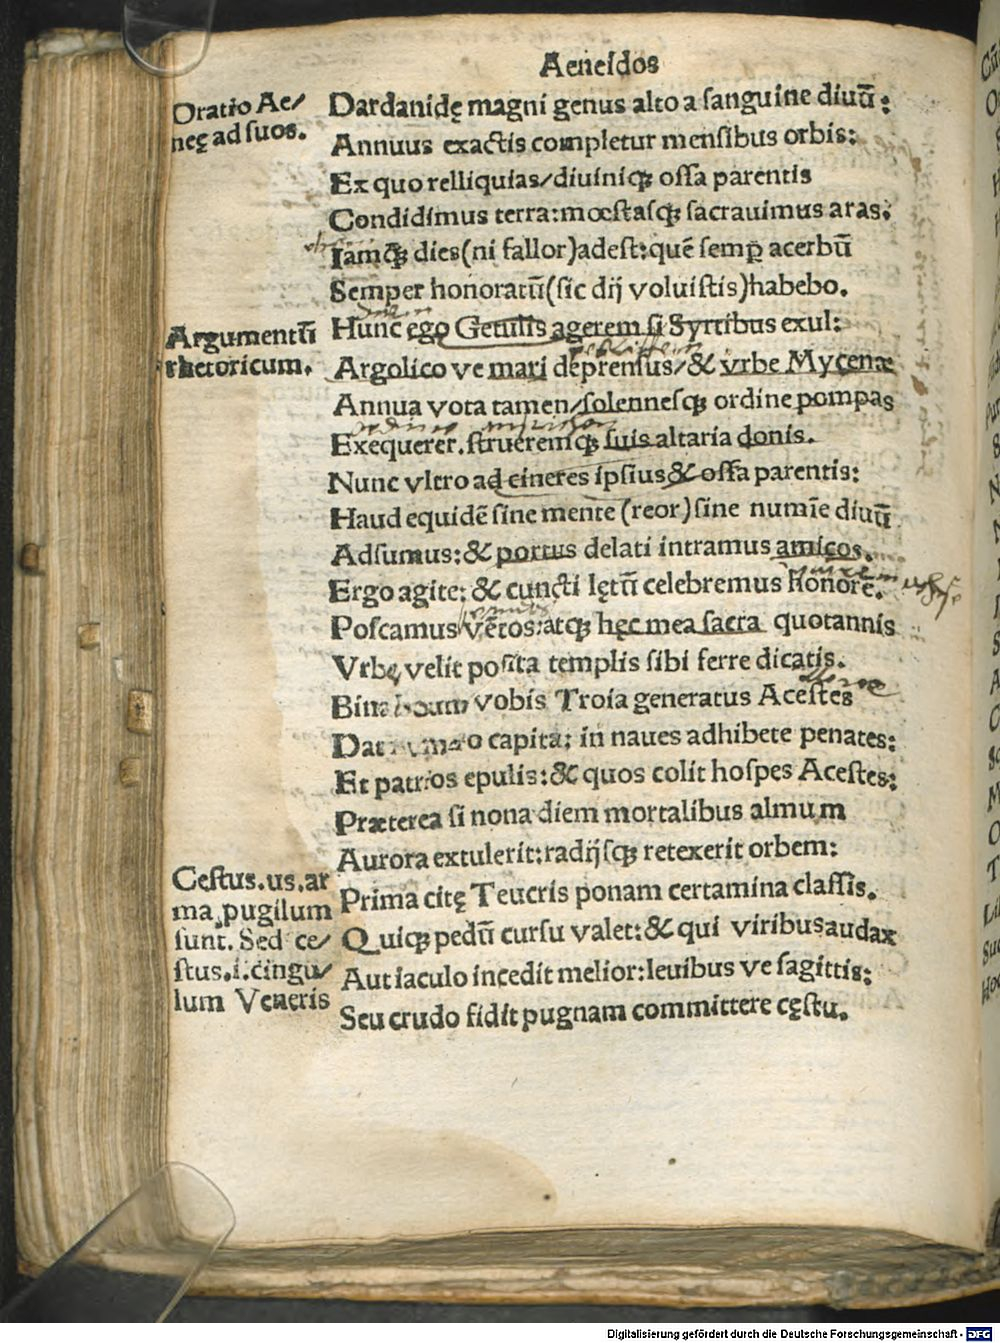 Aeneidos
Oratio Ae/
neę ad suos.
Dardanidę magni genus alto a sanguine diuū:
Annuus exactis completur mensibus orbis:
Ex quo relliquias/diuiniqꝫ ossa parentis
Condidimus terra:mœstasqꝫ sacrauimus aras:
Iamqꝫ dies(ni fallor)adest:quē semꝑ acerbū
Semper honoratū(sic dij voluistis)habebo.
Argumentū
rhetoricum.
Hunc ego Getulis agerem si Syrtibus exul:
Argolico ve mari deprensus/& vrbe Mycenæ
Annua vota tamen/solennesqꝫ ordine pompas
Exequerer.strueremqꝫ suis altaria donis.
Nunc vltro ad cineres ipsius & ossa parentis:
Haud equidē sine mente (reor) sine numīe diuū
Adsumus:& portus delati intramus amicos.
Ergo agite: & cuncti lętū celebremus honorē.
Poscamus vētos:atqꝫ hęc mea sacra quotannis
Vrbe velit posita templis sibi ferre dicatis.
Bina boum vobis Troia generatus Acestes
Dat numero capita: in naues adhibete penates:
Et patrios epulis:& quos colit hospes Acestes:
Præterea si nona diem mortalibus almum
Aurora extulerit:radijsqꝫ retexerit orbem:
Cestus.us.ar
ma pugilum
sunt. Sed ce/
stus.i.cingu/
lum Veneris
Prima citę Teucris ponam certamina classis.
Quiqꝫ pedū cursu valet:& qui viribus audax
Aut iaculo incedit melior:leuibus ve sagittis:
Seu crudo fidit pugnam committere cęstu.
Digitalisierung gefördert durch die Deutsche Forschungsgemeinschaft - DFG